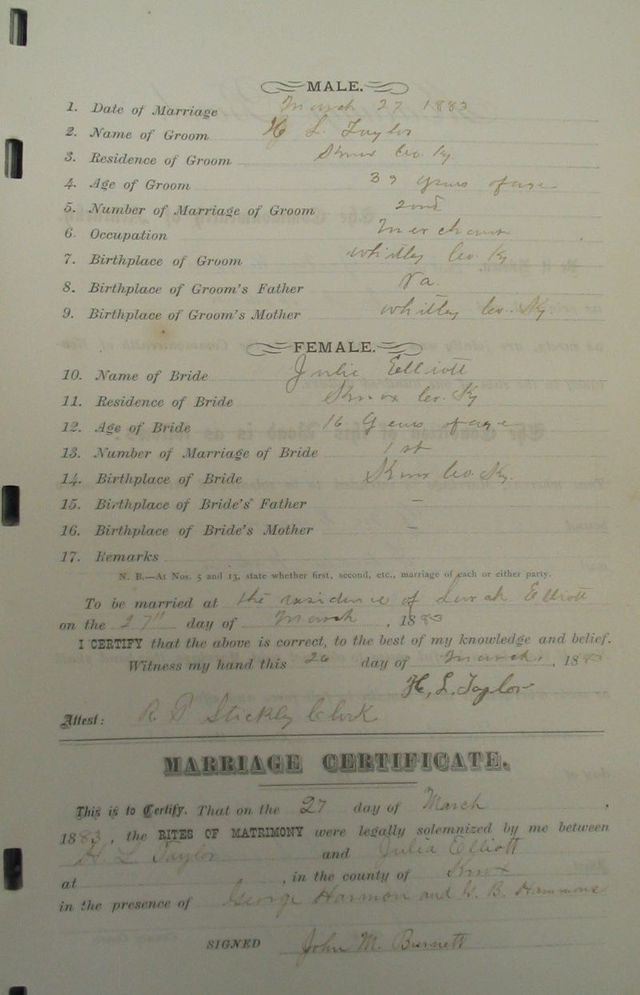 MALE.
1. Date of Marriage March 27 1883
2. Name of Groom H L Taylor
3. Residence of Groom Knox Co. Ky
4. Age of Groom 39 years of age
5. Number of Marriage of Groom 2nd
6. Occupation Merchant
7. Birthplace of Groom Whitley Co. Ky
8. Birthplace of Groom's Father Va
9. Birthplace of Groom's Mother Whitley Co. Ky
FEMALE.
10. Name of Bride Julie Elliott
11. Residence of Bride Knox Co. Ky
12. Age of Bride 16 Years of age
13. Number of Marriage of Bride 1st
14. Birthplace of Bride Knox Co. Ky.
15. Birthplace of Bride's Father –
16. Birthplace of Bride's Mother –
17. Remarks
N. B.—At Nos. 5 and 13, state whether first, second, etc., marriage of each or either party.
To be married at the residence of Elliott
on the 27th day of March , 1883
I CERTIFY that the above is correct, to the best of my knowledge and belief.
Witness my hand this 26 day of March , 1883
H. L. Taylor
Attest: R P Stickly Clerk
MARRIAGE CERTIFICATE.
This is to Certify. That on the 27 day of March
1883, the RITES OF MATRIMONY were legally solemnized by me between
H L Taylor and Julia Elliott
at , in the county of Knox
in the presence of George Harmon and W. B. Hammons
SIGNED John M. Burnett